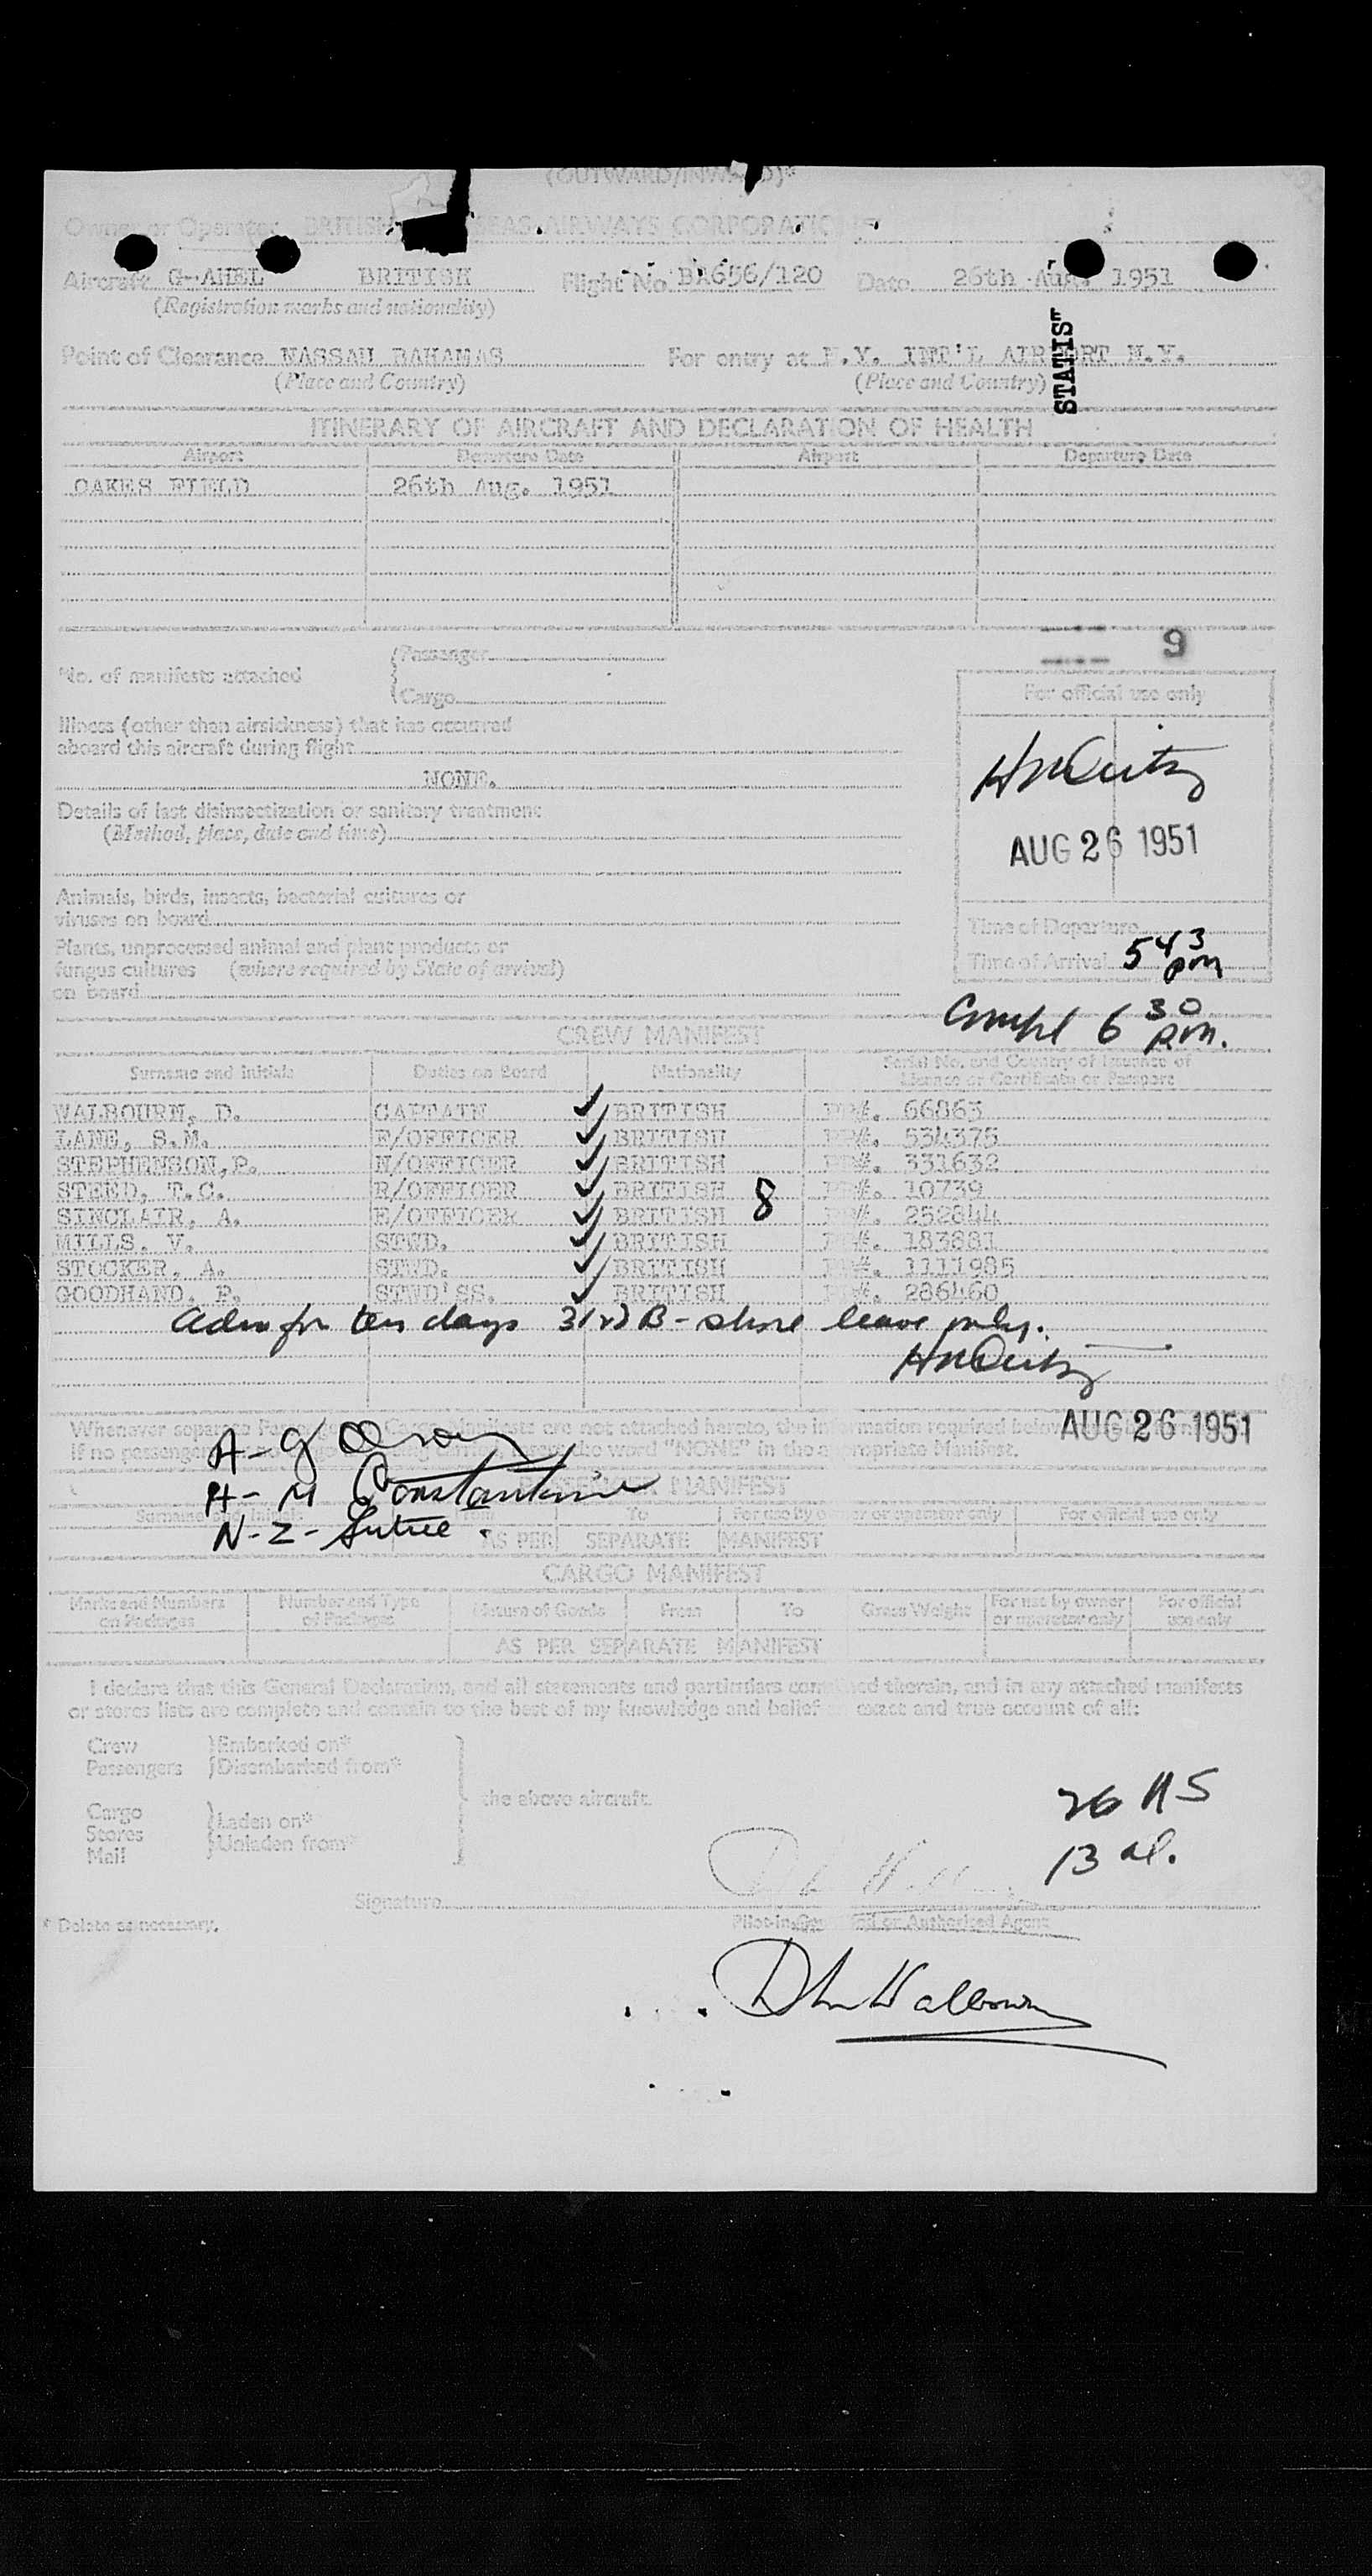 (OUTWARD/INWARD)*
Owner or Operator BRITISH OVERSEAS AIRWAYS CORPORATION
Aircraft G-AHEL BRITISH Flight No. BA656/120 Date 26th Aug. 1951
(Registration marks and nationality)
Point of Clearance NASSAU BAHAMAS For entry at N.Y. INT'L AIRPORT N.Y.
(Place and Country) (Place and Country)
STATIST
ITINERARY OF AIRCRAFT AND DECLARATION OF HEALTH
Airport Departure Date Airport Departure Date
OAKES FIELD 26th Aug. 1951
9
No. of manifests attached
Passenger
Cargo
For official use only
Illness (other than airsickness) that has occurred
aboard this aircraft during flight
NONE.
Details of last disinsectization or sanitary treatment
(Method, place, date and time)
AUG 26 1951
Animals, birds, insects, bacterial cultures or
viruses on board
Time of Departure
Plants, unprocessed animal and plant products or
fungus cultures (where required by State of arrival)
on board
Time of Arrival 5 43 pm
Compl 6 30 pm.
CREW MANIFEST
Surname and Initials Duties on Board Nationality Serial No. and Country of Issuance of
Licence or Certificate or Passport
WALBOURN, D. CAPTAIN BRITISH PP#. 66863
LANE, S.M. F/OFFICER BRITISH PP#. 534375
STEPHENSON, P. N/OFFICER BRITISH PP#. 331632
STEED, T.C. R/OFFICER BRITISH 8 PP#. 10739
SINCLAIR, A. E/OFFICER BRITISH PP#. 252844
MILLS, V. STWD. BRITISH PP#. 183881
STOCKER, A. STWD. BRITISH PP#. 1111985
GOODHAND, P. STWD'SS. BRITISH PP#. 286460
Adm for ten days 3(5) B - shore leave only.
Whenever separate Passenger or Cargo Manifests are not attached hereto, the information required below
if no passenger the word "NONE" in the appropriate Manifest.
AUG 26 1951
A - G
A - M Constantine
N - Z -
PASSENGER MANIFEST
Surname and Initials From To For use by owner or operator only For official use only
AS PER SEPARATE MANIFEST
CARGO MANIFEST
Marks and Numbers on Packages Number and Type of Packages Nature of Goods From To Gross Weight For use by owner or operator only For official use only
AS PER SEPARATE MANIFEST
I declare that this General Declaration, and all statements and particulars contained therein, and in any attached manifests
or stores lists are complete and contain to the best of my knowledge and belief an exact and true account of all:
Crew
Passengers
Embarked on*
Disembarked from*
Cargo
Stores
Mail
Laden on*
Unladen from*
the above aircraft.
26 US
13 al.
Signature
Pilot-in-Command or Authorised Agent
* Delete as necessary.